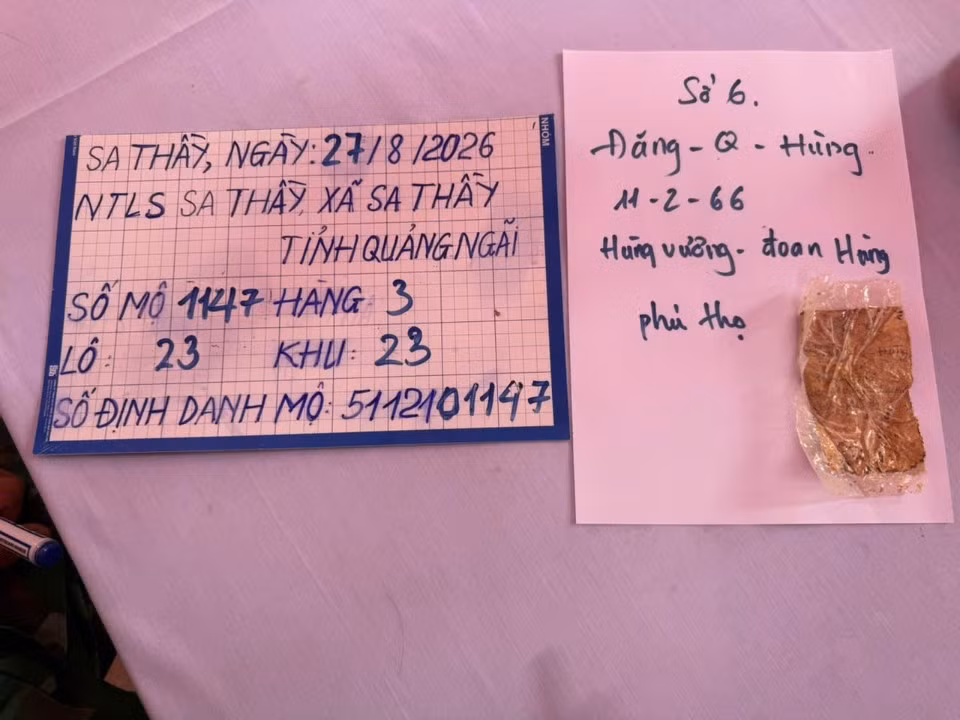 SA THẦY, NGÀY: 27/8/2026
NTLS SA THẦY, XÃ SA THẦY
TỈNH QUẢNG NGÃI
SỐ MỘ 1147 HÀNG 3
LÔ: 23 KHU: 23
SỐ ĐỊNH DANH MỘ: 5112101147
NHÓM
Số 6.
Đăng - Q - Hùng.
11-2-66
Hùng vương - đoan Hùng
phú thọ